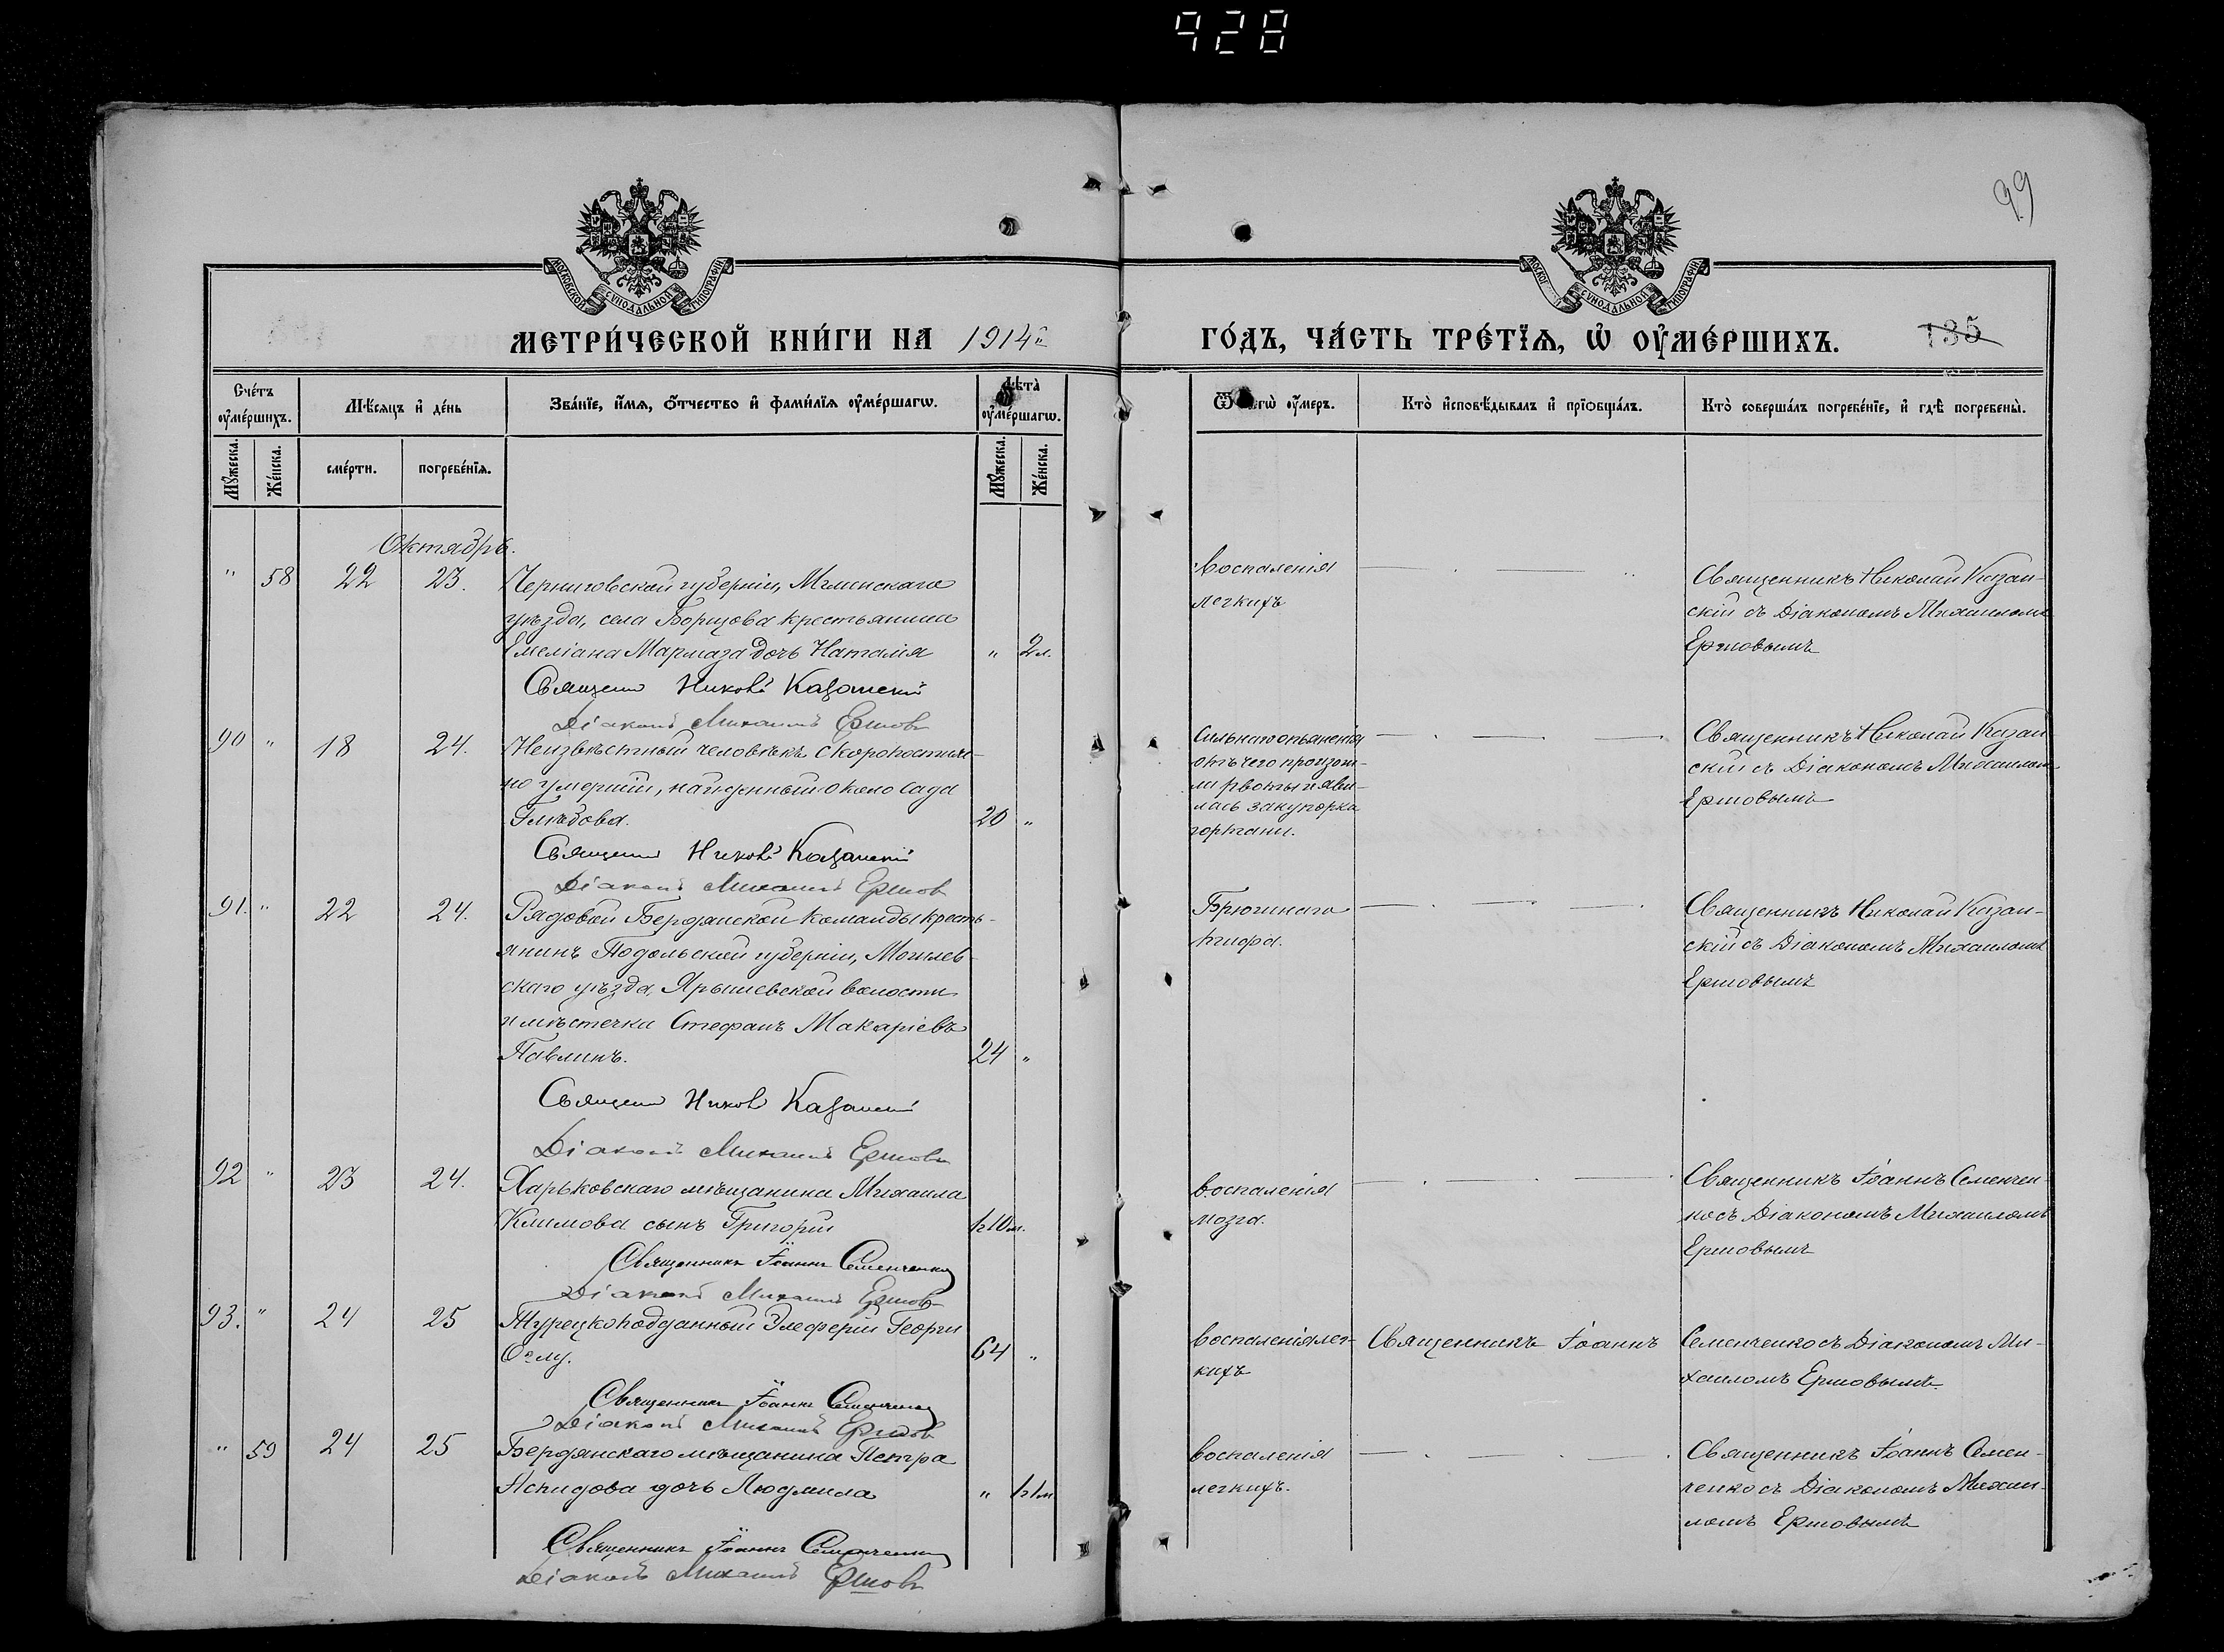 928
99
МОСКОВСКОЙ СѴНОДАЛЬНОЙ ТИПОГРАФІИ
МОСКОВ СѴНОДАЛЬНОЙ ТИПОГРАФІИ
МЕТРИ́ЧЕСКОЙ КНИ́ГИ НА 1914й
ГО́ДЪ, ЧА́СТЬ ТРЕ́ТЇѦ, Ѡ҆ ОУ҆МЕ́РШИХЪ.
135
Сче́тъ оу҆ме́ршихъ.
Мѣ́сѧцъ и҆ де́нь
Зва́нїе, и҆́мѧ, ѻ҆́тчество и҆ фами́лїѧ оу҆ме́ршагѡ.
Лѣ́та оу҆ме́ршагѡ.
Мꙋ́жеска.
Же́нска.
сме́рти.
погребе́нїѧ.
Мꙋ́жеска.
Же́нска.
Ѿ чегѡ̀ оу҆́меръ.
Кто̀ и҆сповѣ́дывалъ и҆ прїѡбща́лъ.
Кто̀ соверша́лъ погребе́нїе, и҆ гдѣ̀ погребены̀.
Октябрь.
" 58 22 23. Черниговской губерніи, Мглинскаго
уѣзда, села Борщова крестьянина
Емеліана Мармаза дочь Наталія " 2 л.
Священ Никол Казанскій
Діаконъ Михаилъ Ершовъ
воспаленія
легкихъ
Священникъ Николай Казан-
скій съ Діакономъ Михаиломъ
Ершовымъ
90 " 18 24. Неизвѣстный человѣкъ скоропостиж-
но умершій, найденный около сада
Глѣбова. 20 "
Священ Никол Казанскій
Діаконъ Михаилъ Ершов
Сильнаго опьяненія
отъ чего произош-
ли рвоты и яви-
лась закупорка
гортани.
Священникъ Николай Казан-
скій съ Діакономъ Михаилом
Ершовымъ
91. " 22 24. Рядовой Бердянской команды кресть-
янинъ Подольской губерніи, Могилев-
скаго уѣзда, Ярышевской волости
и мѣстечка Стефанъ Макаріевъ
Павлинъ. 24 "
Священ Никол Казанскій
Діаконъ Михаилъ Ершовъ
Брюшнаго
тифа.
Священникъ Николай Казан-
скій съ Діакономъ Михаиломъ
Ершовымъ
92 " 23 24. Харьковскаго мѣщанина Михаила
Климова сынъ Григорій 1г 10 м.
Священникъ Іоаннъ Семенченко
Діаконъ Михаилъ Ершовъ
воспаленія
мозга.
Священникъ Іоаннъ Семенчен-
ко съ Діакономъ Михаиломъ
Ершовымъ
93. " 24 25 Турецкоподданный Элеферій Георги
Оглу. 64 "
Священникъ Іоаннъ Семенченко
Діаконъ Михаилъ Ершов
воспаленія лег-
кихъ
Священникъ Іоаннъ
Семенченко съ Діакономъ Ми-
хаиломъ Ершовымъ.
" 59 24 25 Бердянскаго мѣщанина Петра
Аспидова дочь Людмила " 1г 1м
Священникъ Іоаннъ Семенченко
Діаконъ Михаилъ Ершовъ
воспаленія
легкихъ.
Священникъ Іоаннъ Семен-
ченко съ Діакономъ Михаи-
ломъ Ершовымъ